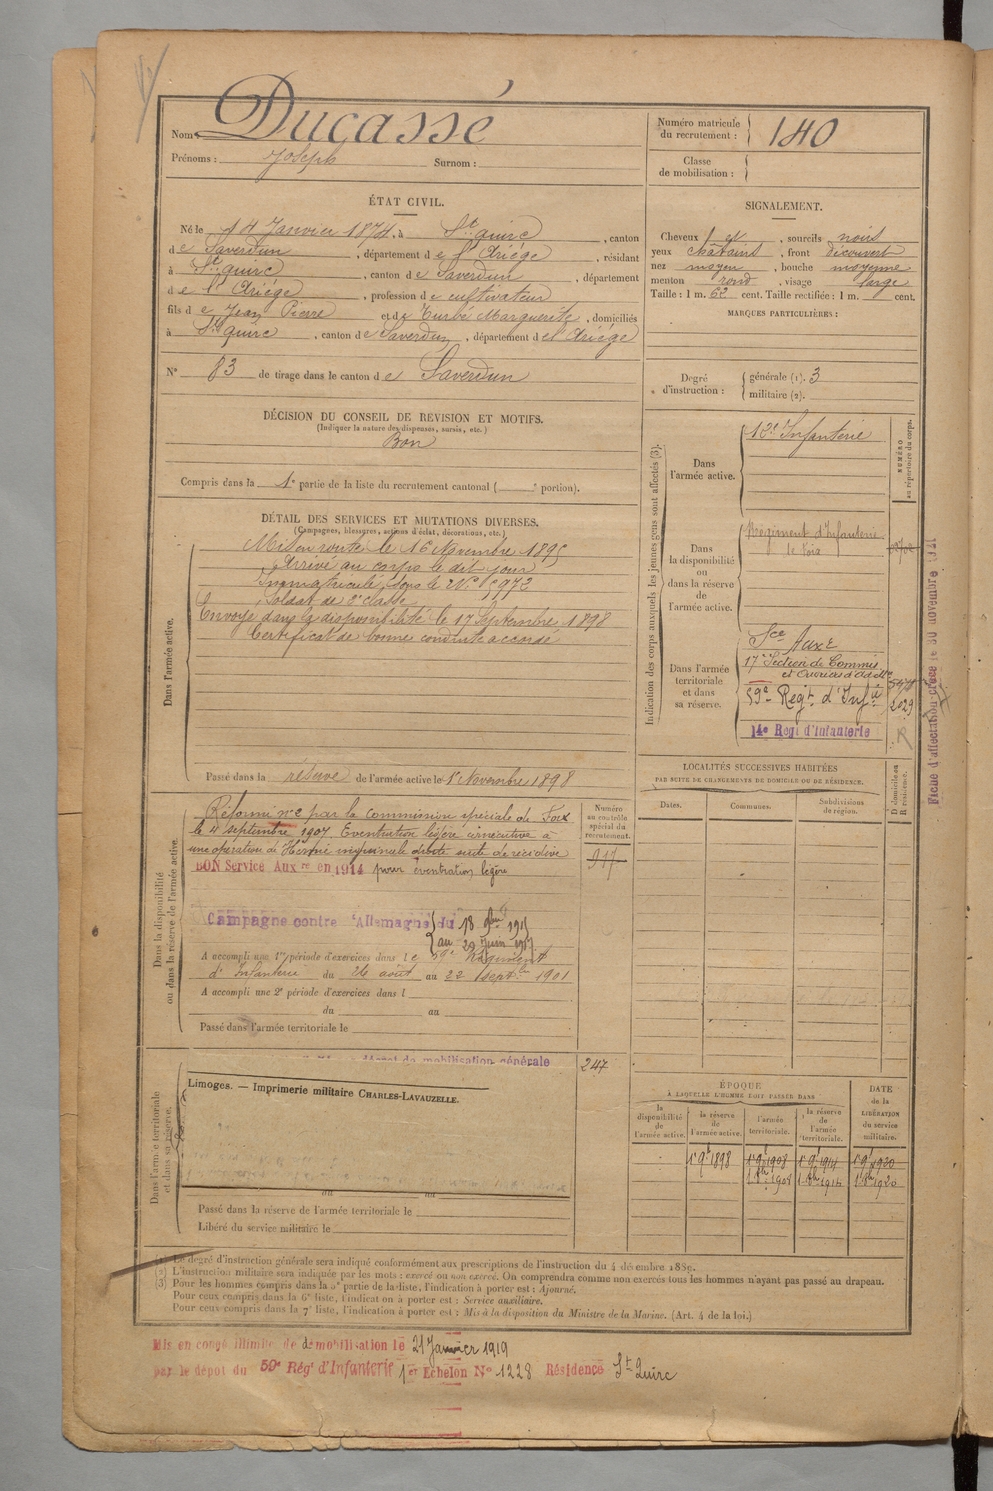 Nom : Ducassé
Prénoms : Joseph Surnom :
Numéro matricule du recrutement : 140
Classe de mobilisation :
ÉTAT CIVIL.
Né le 14 Janvier 1874, à St Quirc, canton
de Saverdun, département de l'Ariége, résidant
à St Quirc, canton de Saverdun, département
de l'Ariége, profession de cultivateur
fils de Jean Pierre et de Turbé Marguerite, domiciliés
à St Quirc, canton de Saverdun, département de l'Ariége
N° 83 de tirage dans le canton de Saverdun
SIGNALEMENT.
Cheveux et, sourcils noirs
yeux châtains, front découvert
nez moyen, bouche moyenne
menton rond, visage large
Taille : 1 m. 62 cent. Taille rectifiée : 1 m. cent.
MARQUES PARTICULIÈRES :
Degré d'instruction : générale (1). 3
militaire (2).
DÉCISION DU CONSEIL DE REVISION ET MOTIFS.
(Indiquer la nature des dispenses, sursis, etc.)
Bon
Compris dans la 1e partie de la liste du recrutement cantonal ( e portion).
DÉTAIL DES SERVICES ET MUTATIONS DIVERSES.
(Campagnes, blessures, actions d'éclat, décorations, etc.)
Dans l'armée active.
Mis en route le 16 Novembre 1895
Arrivé au corps le dit jour
Immatriculé sous le N° 5972
Soldat de 2e classe
Envoyé dans la disponibilité le 17 Septembre 1898
Certificat de bonne conduite accordé
Passé dans la réserve de l'armée active le 1er Novembre 1898
Indication des corps auxquels les jeunes gens sont affectés (3).
NUMÉRO au répertoire du corps.
Dans l'armée active.
12e Infanterie
Dans la disponibilité ou dans la réserve de l'armée active.
Régiment d'Infanterie
de Foix
Dans l'armée territoriale et dans sa réserve.
Sce Auxre
17e Section de Commis
et Ouvriers d'Adon
59e Regt d'Infie
14e Regt d'Infanterie
2029
R
Fiche d'affectation créée le 30 novembre 1921
Dans la disponibilité ou dans la réserve de l'armée active.
Réformé n° 2 par la Commission spéciale de Foix
le 4 septembre 1907 Eventration légère consécutive à
une opération de Hernie inguinale droite suite de récidive
BON Service Auxre en 1914 pour éventration légère
Campagne contre l'Allemagne du 18
au 29 Juin
A accompli une 1re période d'exercices dans le 59e Régiment
d'Infanterie du 26 août au 22 septbre 1901
A accompli une 2e période d'exercices dans l
du au
Passé dans l'armée territoriale le
Numéro au contrôle spécial du recrutement.
917
247
LOCALITÉS SUCCESSIVES HABITÉES
PAR SUITE DE CHANGEMENTS DE DOMICILE OU DE RÉSIDENCE.
D domicile ou R résidence.
Dates. Communes. Subdivisions de région.
de mobilisation générale
Limoges. — Imprimerie militaire CHARLES-LAVAUZELLE.
Dans l'armée territoriale et dans sa réserve.
Passé dans la réserve de l'armée territoriale le
Libéré du service militaire le
ÉPOQUE
À LAQUELLE L'HOMME DOIT PASSER DANS
la disponibilité de l'armée active.
la réserve de l'armée active.
l'armée territoriale.
la réserve de l'armée territoriale.
DATE de la LIBÉRATION du service militaire.
1er 9bre 1898 1er 9bre 1908 1er 9bre 1914 1er 9bre 1920
1 8bre 1908 1 8bre 1914 1 8bre 1920
(1) Le degré d'instruction générale sera indiqué conformément aux prescriptions de l'instruction du 4 décembre 1889.
(2) L'instruction militaire sera indiquée par les mots : exercé ou non exercé. On comprendra comme non exercés tous les hommes n'ayant pas passé au drapeau.
(3) Pour les hommes compris dans la 2e partie de la liste, l'indication à porter est : Ajourné.
Pour ceux compris dans la 6e liste, l'indication à porter est : Service auxiliaire.
Pour ceux compris dans la 7e liste, l'indication à porter est : Mis à la disposition du Ministre de la Marine. (Art. 4 de la loi.)
Mis en congé illimité de démobilisation le 21 Janvier 1919
par le dépôt du 59e Rég d'Infanterie 1er Echelon N° 1228 Résidence St Quirc